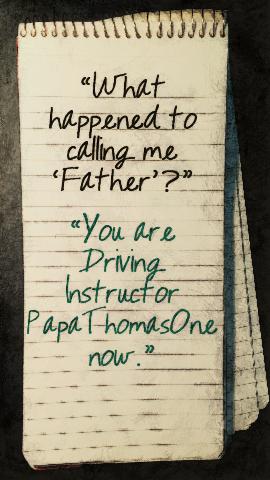 “What
happened to
calling me
‘Father’?”
“You are
Driving
Instructor
PapaThomasOne
now.”